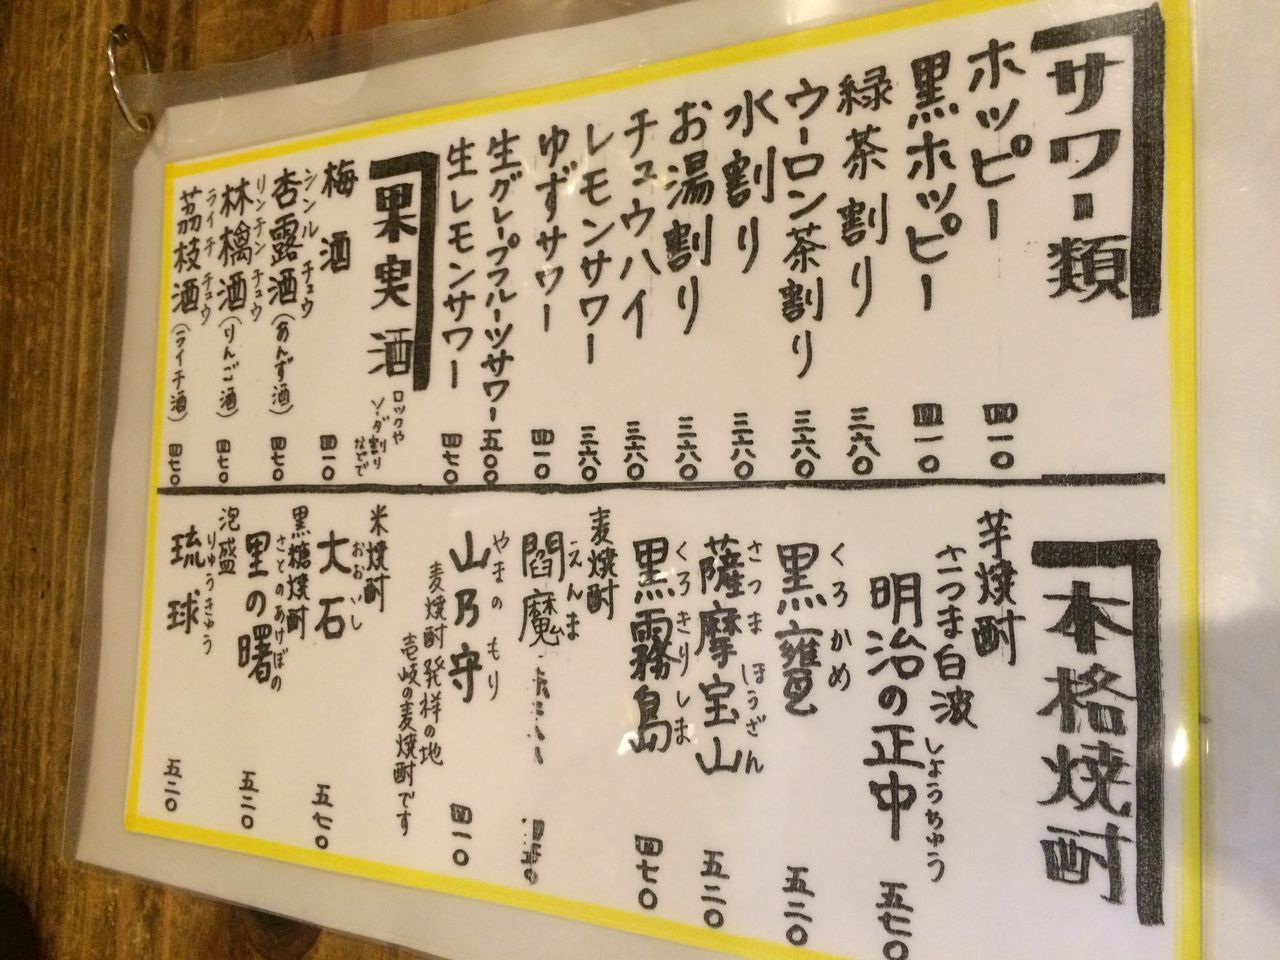 サワー類
ホッピー 四一〇
黒ホッピー 四一〇
緑茶割り 三六〇
ウーロン茶割り 三六〇
水割り 三六〇
お湯割り 三六〇
チュウハイ 三六〇
レモンサワー 三六〇
ゆずサワー 四一〇
生グレープフルーツサワー 五〇〇
生レモンサワー 四七〇
果実酒
ロックや
ソーダ割り
などで
梅酒 四一〇
シンルチュウ
杏露酒(あんず酒) 四七〇
リンチンチュウ
林檎酒(りんご酒) 四七〇
ライチチュウ
茘枝酒(ライチ酒) 四七〇
本格焼酎
芋焼酎
さつま白波
しょうちゅう
明治の正中 五七〇
くろかめ
黒甕 五二〇
さつまほうざん
薩摩宝山 五二〇
くろきりしま
黒霧島 四七〇
麦焼酎
えんま
閻魔
やまのもり
山乃守 四一〇
麦焼酎発祥の地
壱岐の麦焼酎です
米焼酎
おおいし
大石 五七〇
黒糖焼酎
さとのあけぼの
里の曙 五二〇
泡盛
りゅうきゅう
琉球 五二〇